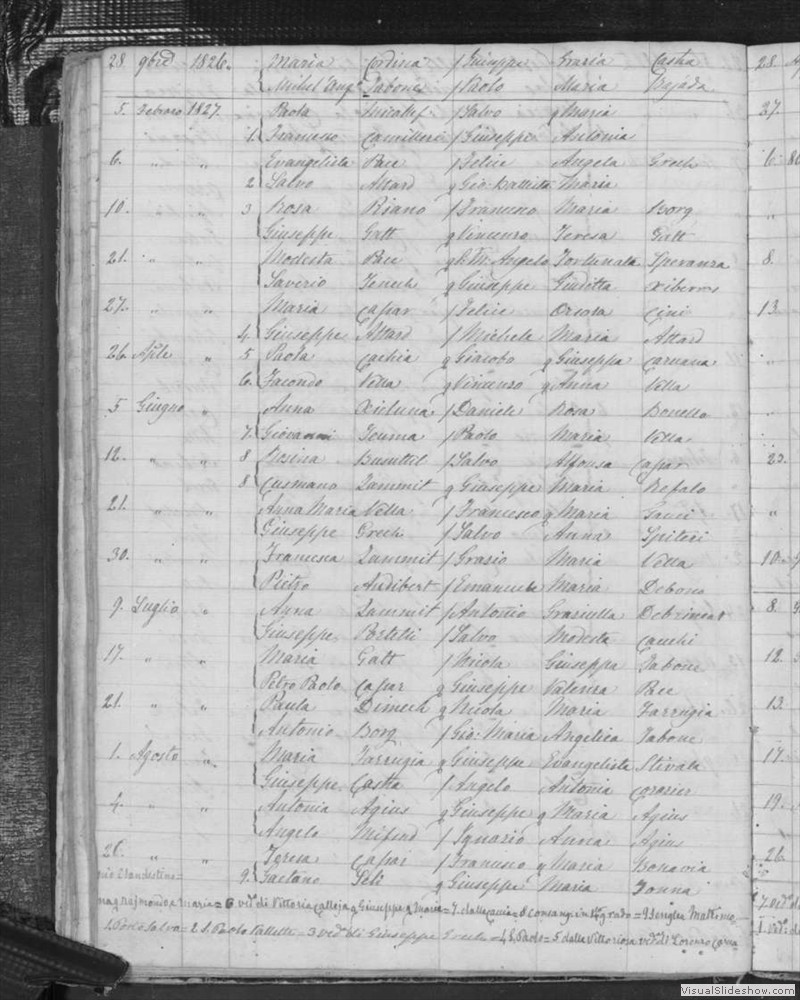 28 9bre 1826. Maria Cordina f Giuseppe Grazia Castha
Michel'Ang. Tabone f Paolo Maria Bajada
5. Febraro 1827. Paola Micallef f Salvo q Maria
1. Francesco Camilleri f Giuseppe Antonia
6. " " Evangelista Pace f Felice Angela Grech
2 Salvo Attard q Gio Battista Maria
10. " " 3 Rosa Piano f Francesco Maria Borg
Giuseppe Gatt q Vincenzo Teresa Gatt
21. " " Modesta Pace q Angelo Fortunata Speranza
Saverio Zench q Giuseppe Giuditta Xiberras
27. " " Maria Caxar f Felice Orsola Cini
4. Giuseppe Attard f Michele Maria Attard
26 Aple " 5 Paola Cachia q Giacobo q Giuseppa Caruana
6. Facondo Vella q Vincenzo q Anna Vella
5 Giugno " Anna Xicluna f Daniele Rosa Bonello
7. Giovanni Teuma f Paolo Maria Vella
12. " " 8 Rosina Busuttil f Salvo Alfonsa Caxar
8 Cusmano Zammit q Giuseppe Maria Refalo
21. " " Anna Maria Vella f Francesco q Maria Gauci
Giuseppe Grech f Salvo Anna Spiteri
30. " " Francesca Zammit f Grazio Maria Vella
Pietro Audibert f Emanuele Maria Debono
9. Luglio " Anna Zammit f Antonio Graziulla
Giuseppe Portelli f Salvo Modesta Cauchi
17. " " Maria Gatt f Nicola Giuseppa Tabone
Petro Paolo Caxar q Giuseppe Valenza Pace
21. " " Paula Dimech q Nicola Maria Farrugia
Antonio Borg f Gio: Maria Angelica Tabone
1. Agosto " Maria Farrugia q Giuseppe Evangelista Stivala
Giuseppe Castha f Angelo Antonia
4. " " Antonia Agius q Giuseppe q Maria Agius
Angelo Mifsud f Ignazio Anna Agius
26. " " Teresa Caxar f Francesco q Maria Bonavia
9. Gaetano Feli q Giuseppe Maria Zonna
Clandestino=
Raimondo e Maria = 6 vid. di Vittoria Calleja q Giuseppe q Maria = 7. dalla Cania = 8 consang: in 4 grado = 9 Senglea
1. Porto Salvo = 2 S. Paolo Valletta = 3 vid. di Giuseppe Grech = 4 S. Paolo = 5 dalla Vittoriosa vid. di Lorenzo
28.
27.
6.
8.
13
22.
10
8.
12.
13
17.
19.
26.
VisualSlideshow.com